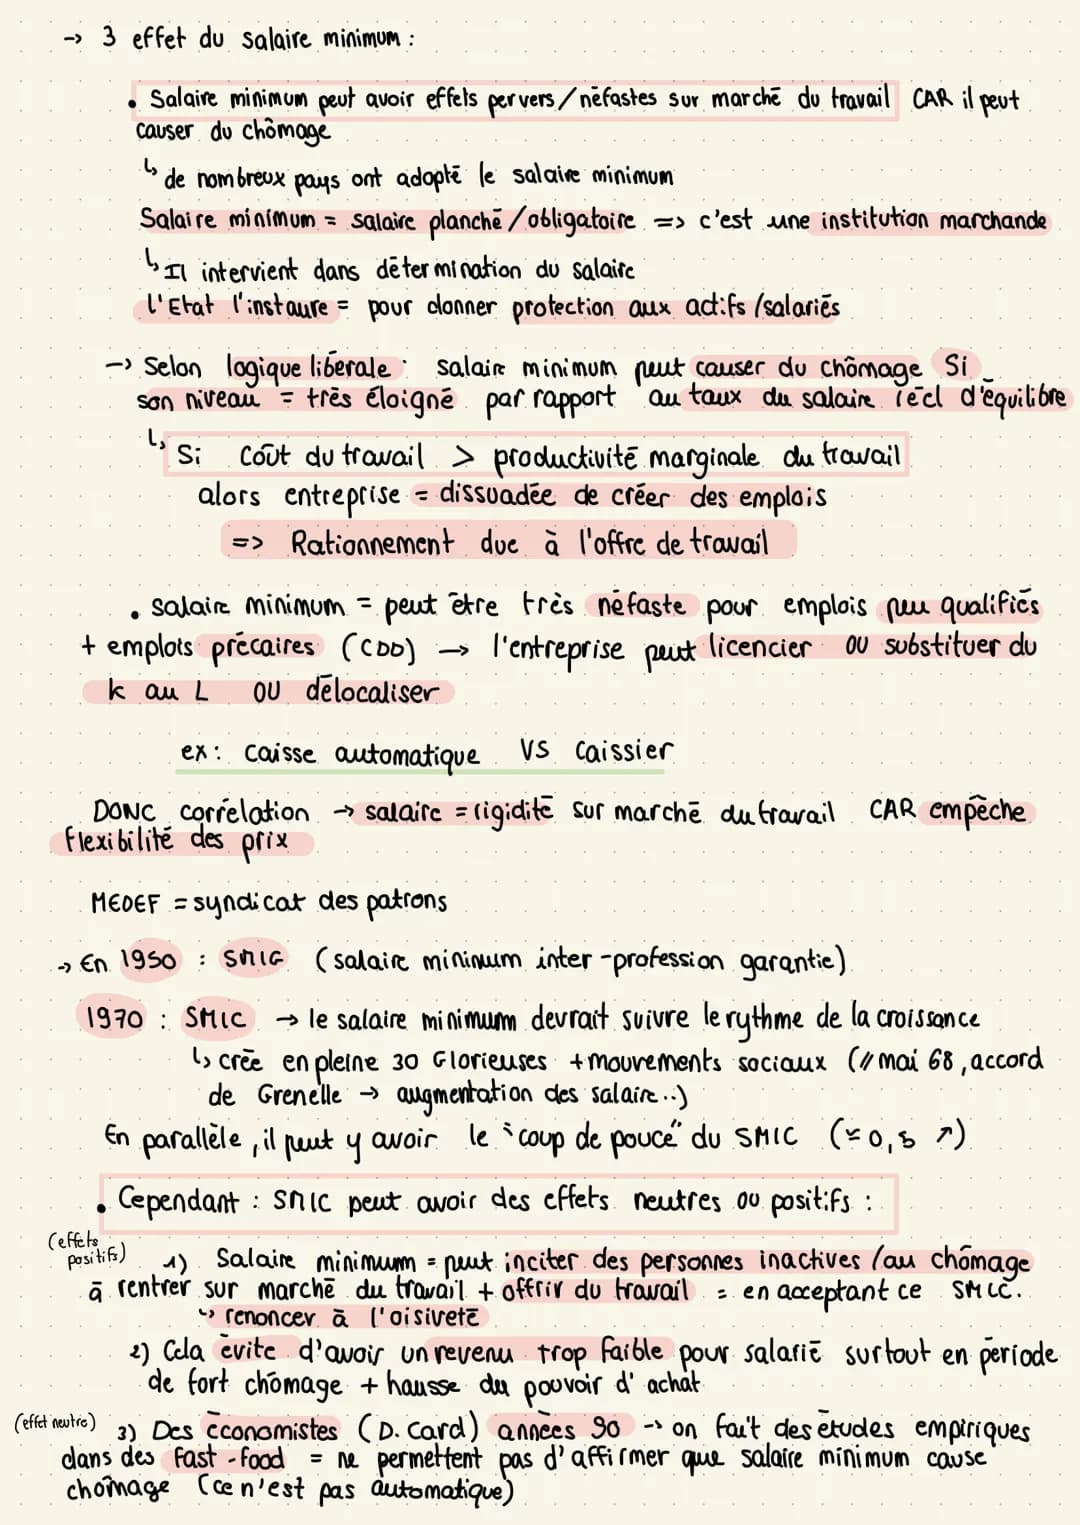 → 3 effet du salaire minimum :
• Salaire minimum peut avoir effets pervers/néfastes sur marché du travail CAR il peut
causer du chômage
↳ de nombreux pays ont adopté le salaire minimum
Salaire minimum = salaire planché/obligatoire => c'est une institution marchande
↳ Il intervient dans détermination du salaire
l'Etat l'instaure = pour donner protection aux actifs/salariés
→ Selon logique libérale : salaire minimum peut causer du chômage Si
son niveau = très éloigné par rapport au taux du salaire réel d'équilibre
↳ Si coût du travail > productivité marginale du travail
alors entreprise = dissuadée de créer des emplois
=> Rationnement due à l'offre de travail
• salaire minimum = peut être très néfaste pour emplois peu qualifiés
+ emplois précaires (CDD) → l'entreprise peut licencier OU substituer du
k au L OU délocaliser
ex : caisse automatique VS caissier
DONC corrélation → salaire = rigidité sur marché du travail CAR empêche
flexibilité des prix
MEDEF = syndicat des patrons
→ En 1950 : SMIG (salaire minimum inter-profession garantie)
1970 : SMIC → le salaire minimum devrait suivre le rythme de la croissance
↳ crée en pleine 30 Glorieuses + mouvements sociaux (// mai 68, accord
de Grenelle → augmentation des salaire..)
En parallèle, il peut y avoir le "coup de pouce" du SMIC (≃ 0,5 ↗)
• Cependant : SMIC peut avoir des effets neutres ou positifs :
(effets positifs) 1) Salaire minimum = peut inciter des personnes inactives/au chômage
à rentrer sur marché du travail + offrir du travail = en acceptant ce SMIC.
↳ renoncer à l'oisiveté
2) Cela évite d'avoir un revenu trop faible pour salarié surtout en période
de fort chômage + hausse du pouvoir d'achat
(effet neutre) 3) Des économistes (D. Card) années 90 → on fait des études empiriques
dans des fast-food = ne permettent pas d'affirmer que salaire minimum cause
chômage (ce n'est pas automatique)